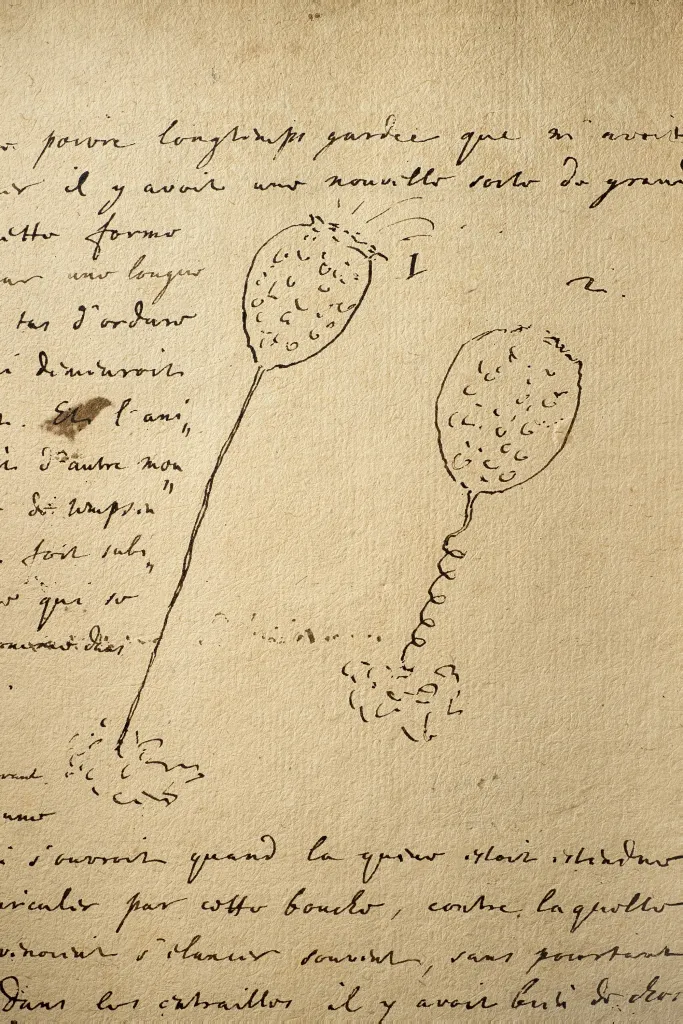 poivre longtemps gardée que m'avoit
il y avoit une nouvelle sorte de grand
cette forme
une longue
tas d'ordure
demeuroit
Et l'ani„
d'autre mou„
de temps en„
foit subi„
qui se
1
2.
s'ouvroit quand la queue estoit estendue
par cette bouche, contre laquelle
venoient s'elancer souvent, sans pourtant
dans les entrailles il y avoit bien de chos